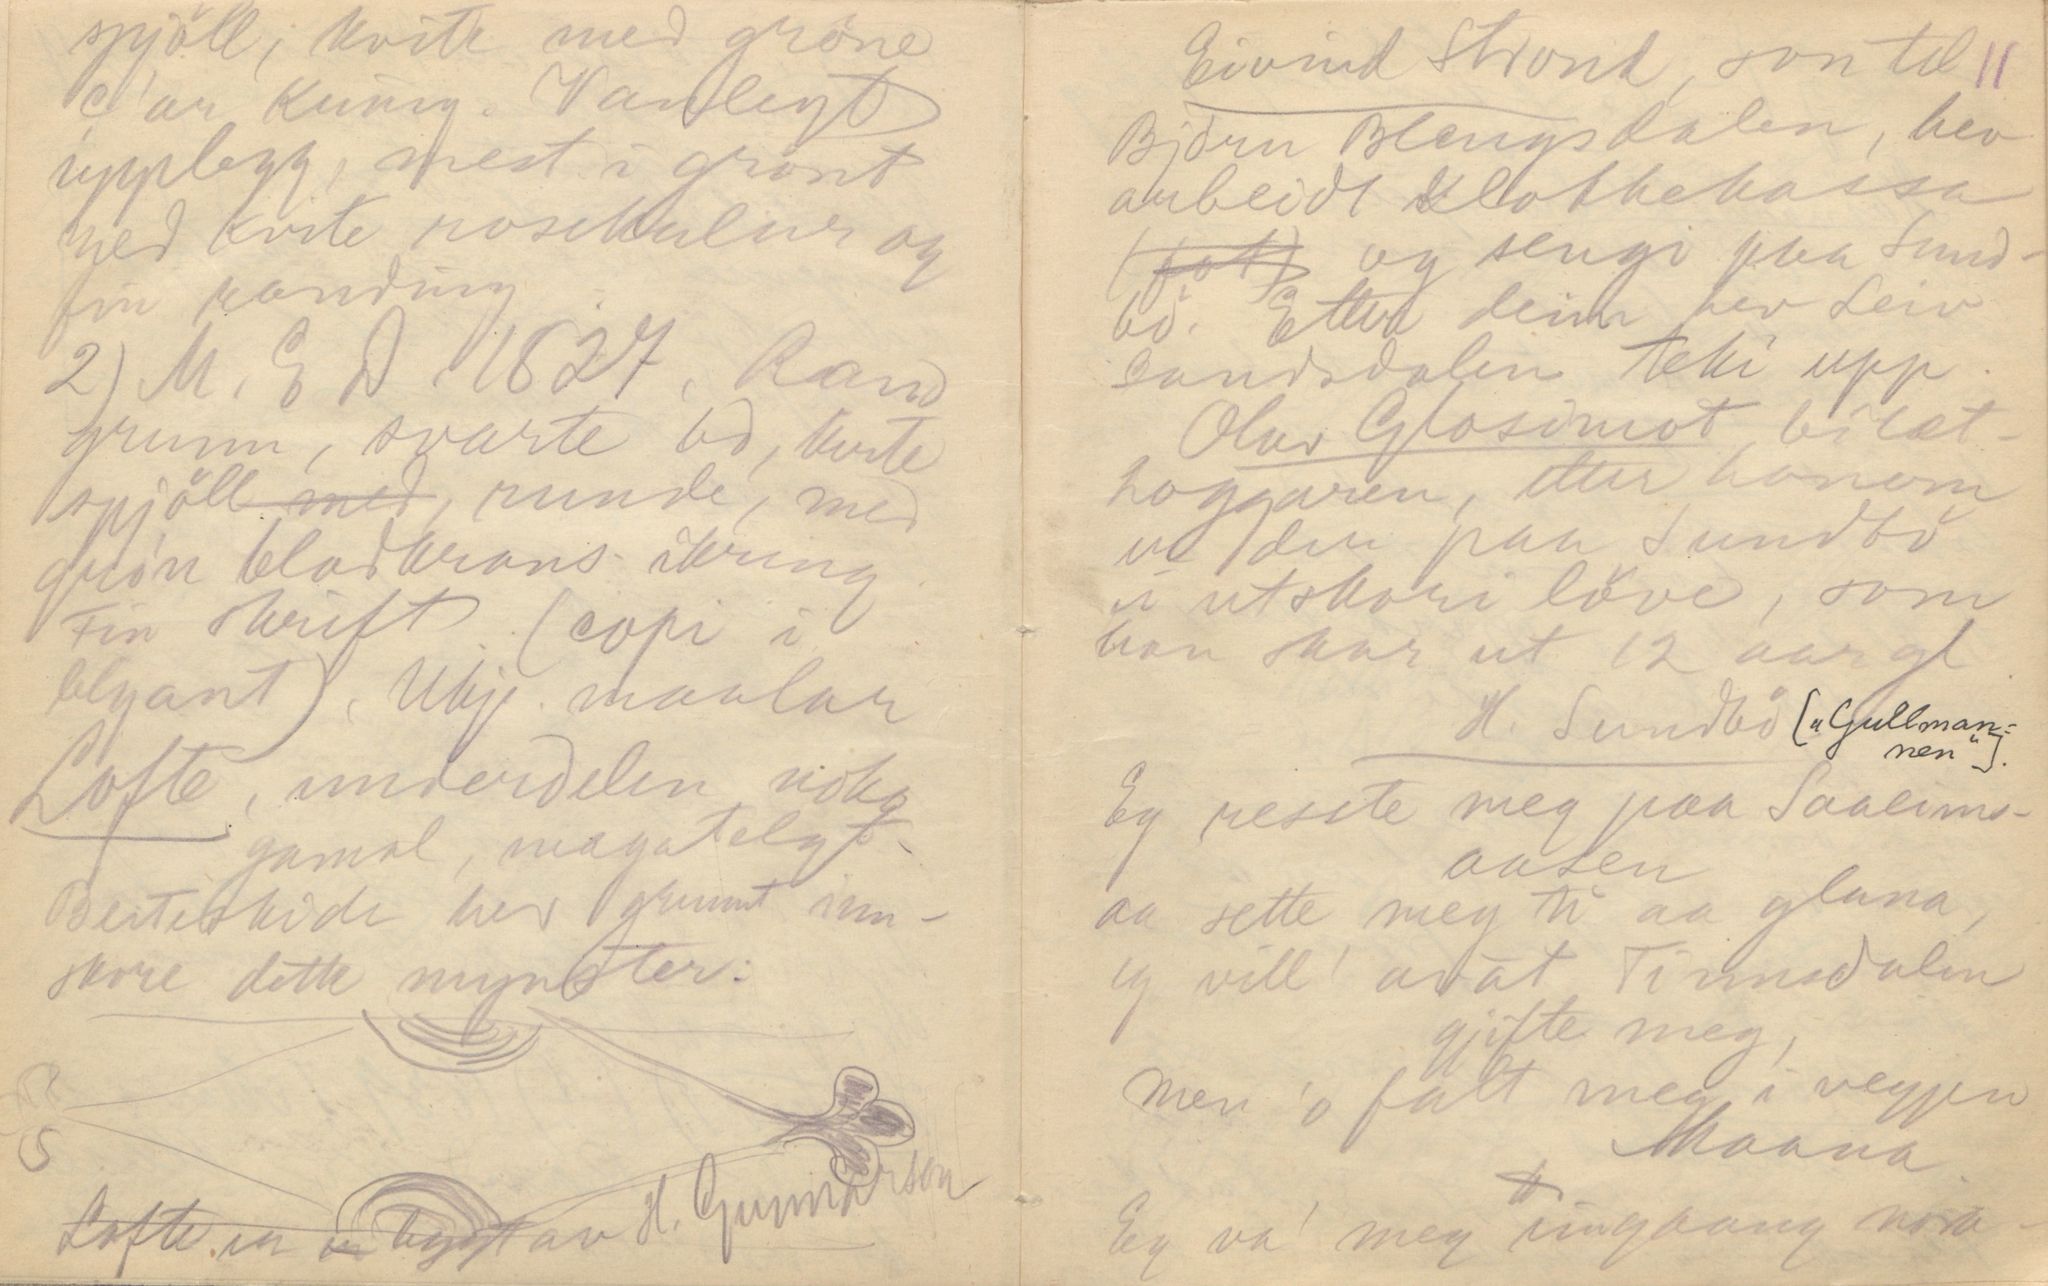 spjöll, kvite med gröne
kring. Vanlegt
upplegg, mest i grönt
med kvite rosekulur og
fin randing.
2) M. E D. 1827, Raud
grunn, svarte bö, kvite
spjöll med, runde, med
grön bladkrans ikring
Fin skrift (copi i
blyant), Ukj. maalar
Lofte, underdelen noka
gamal, magatelgt.
Beiteskidi hev grunt inn-
skore dette mynster:
Lofte er bygt av H. Gunnarson
Eivind Strond, son til 11
Björn Blengsdalen, hev
arbeidt klokkekassa
og sengi paa Sund-
bö. Etter deim hev Leiv
Sandsdalen teki upp.
Olav Glosimot, bilæt-
hoggaren, etter honom
er der paa Sundbö
ei utskori löve, som
han skar ut 12 aar gl
H. Sundbö ("Gullman-
nen").
Eg resete meg paa Saaleims-
aasen
aa sette meg ti aa glana,
eg vill' avat Tinnsdalen
gjifte meg,
men 'o falt meg i veggen
Maana.
Eg va' meg eingaang